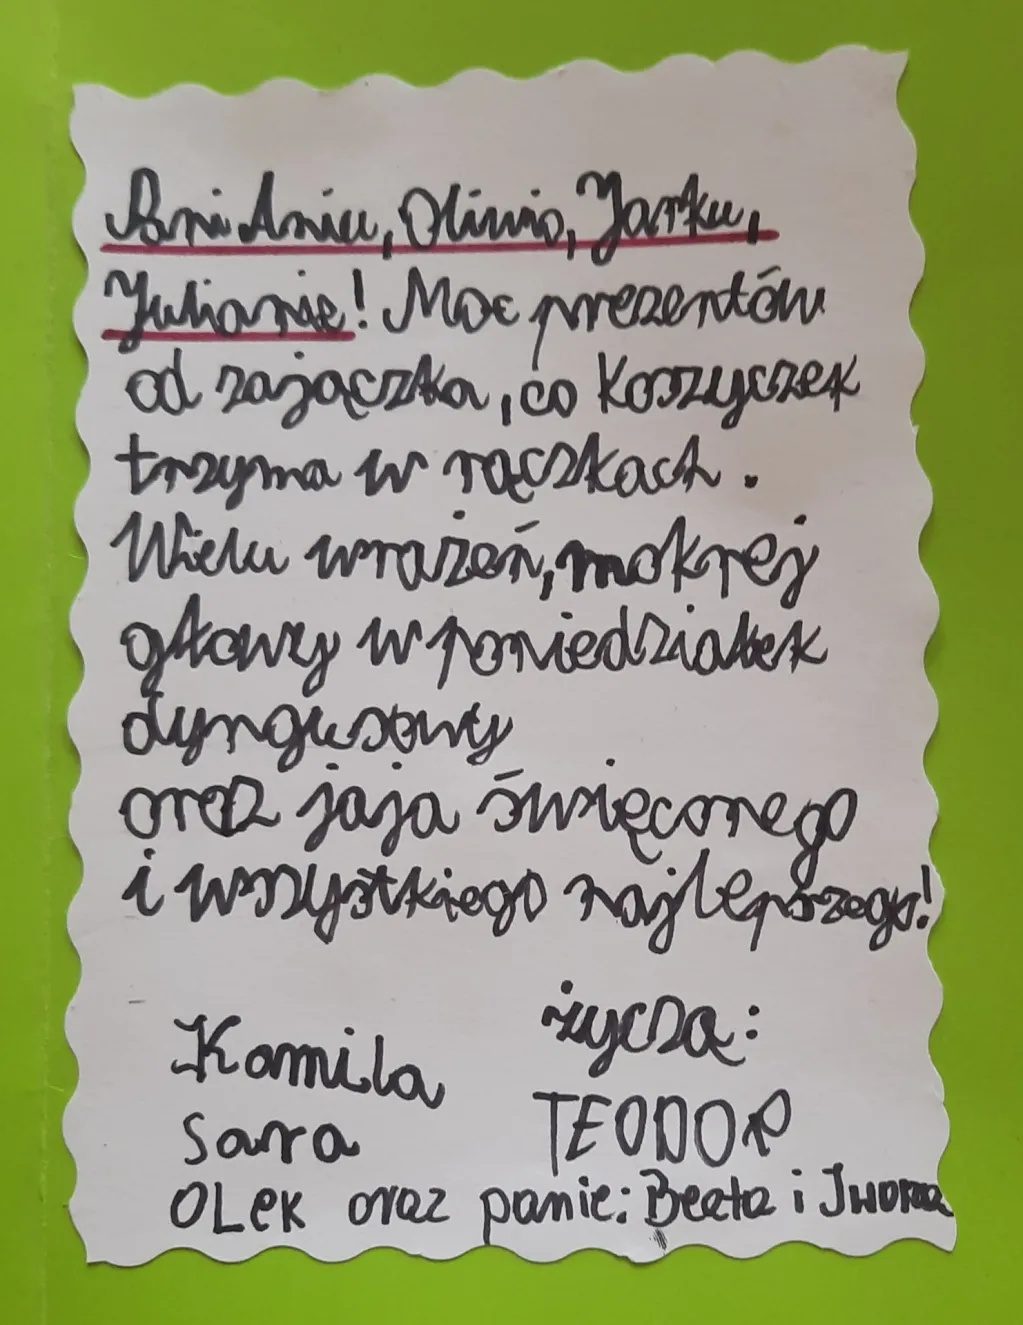 Pani Aniu, Oliwio, Jarku,
Julianie! Moc prezentów
od zajączka, co koszyczek
trzyma w rączkach.
Wielu wrażeń, mokrej
głowy w poniedziałek
dyngusowy
oraz jaja święconego
i wszystkiego najlepszego!
życzą:
Kamila
Sara TEODOR
OLEK oraz panie: Beata i Iwona